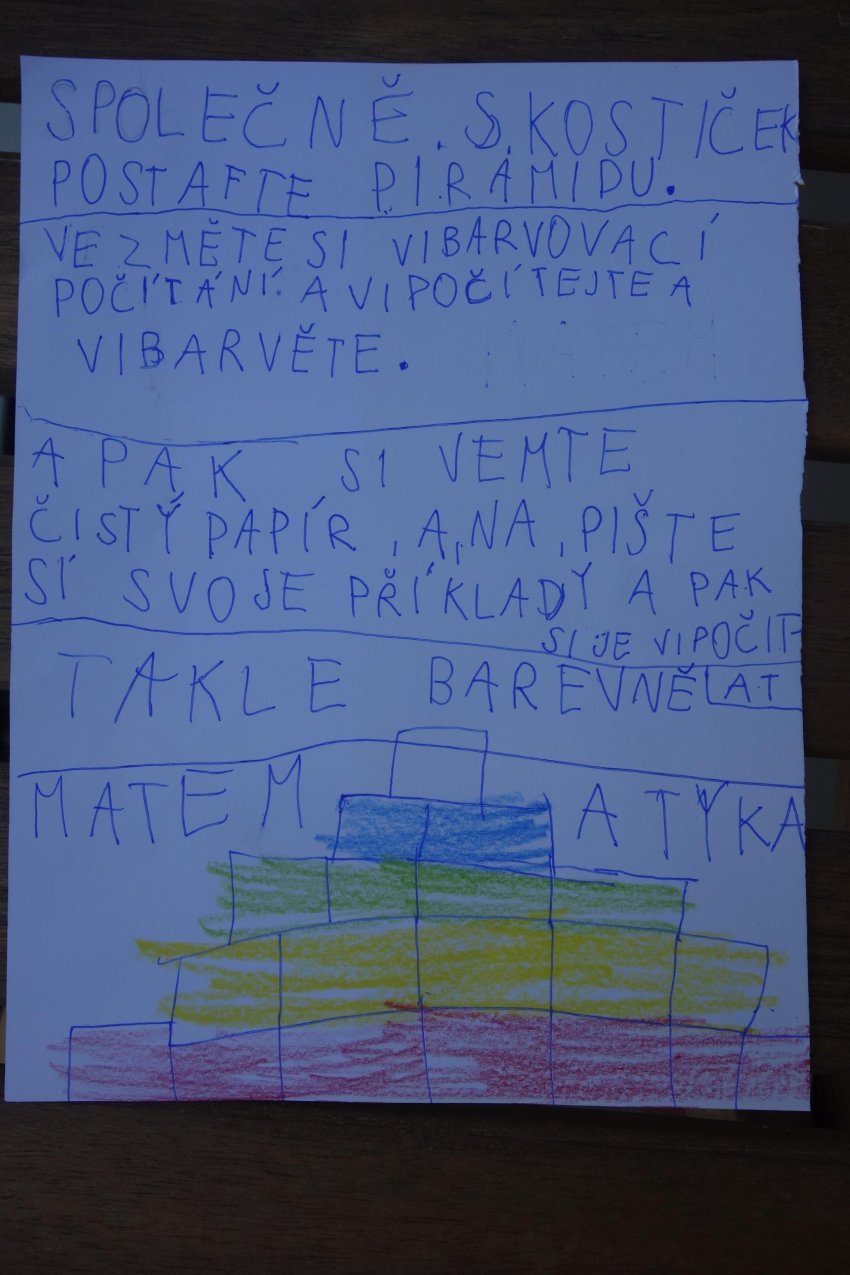 SPOLEČNĚ. S. KOSTIČEK
POSTAFTE PIRAMIDU.
VEZMĚTE SI VIBARVOVACÍ
POČÍTÁNÍ. A VIPOČÍTEJTE A
VIBARVĚTE.
A PAK SI VEMTE
ČISTÝ PAPÍR, A, NA, PIŠTE
SÍ SVOJE PŘÍKLADY A PAK
SI JE VIPOČIT
LAT
TAKLE BAREVNĚ
MATEM A TYKA